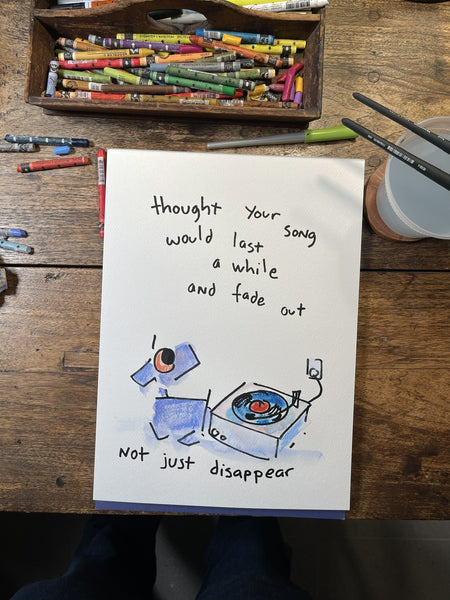 thought your song
would last
a while
and fade out
Not just disappear